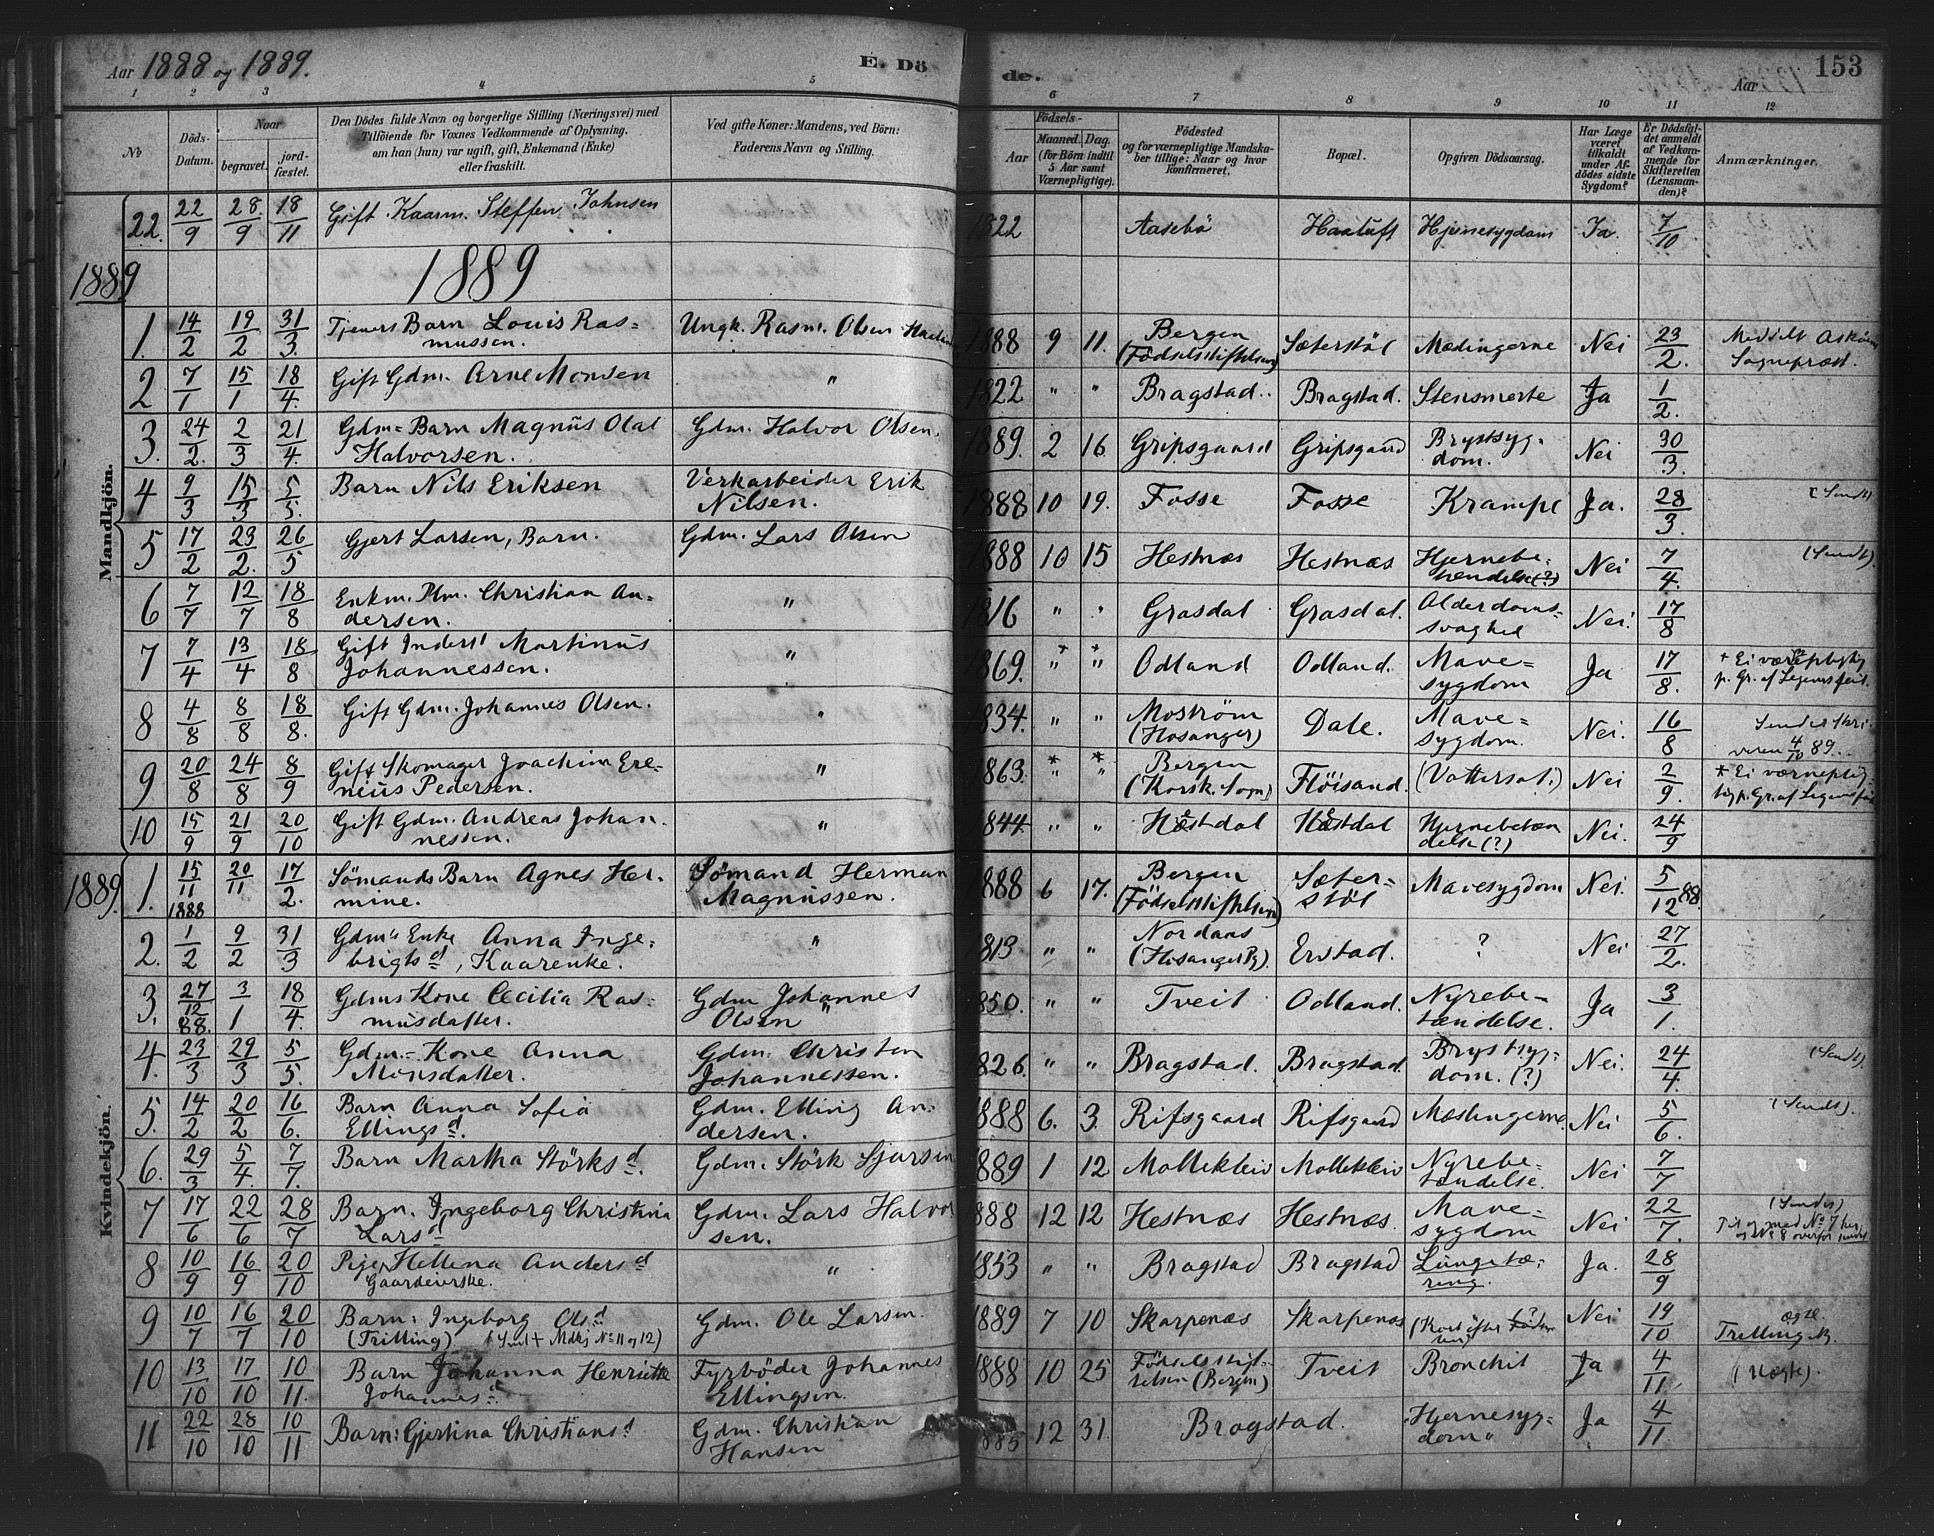 Aar 1888 og 1889.
E. Dö
de.
Aar
153
1 2 3 4 5 6 7 8 9 10 11 12
No
Döds-Datum.
Naar
begravet.
jord-fæstet.
Den Dödes fulde Navn og borgerlige Stilling (Næringsvei) med
Tilföiende för Voxnes Vedkommende af Oplysning,
om han (hun) var ugift, gift, Enkemand (Enke)
eller fraskilt.
Ved gifte Koner: Mandens, ved Börn:
Faderens Navn og Stilling.
Födsels-
Aar
Maaned. Dag.
(for Börn indtil
5 Aar samt
Værnepligtige).
Födested
og for værnepligtige Mandska-
ber tillige: Naar og hvor
konfirmeret.
Bopæl.
Opgiven Dödsaarsag.
Har Læge
været
tilkaldt
under Af-
dödes sidste
Sygdom?
Er Dödsfal-
det anmeldt
af Vedkom-
mende for
Skifteretten
(Lensman-
den)?
Anmærkninger.
Mandkjön.
22. 22/9 28/9 18/11 Gift Kaarm. Steffen Johnsen 1822 Aasebö Haaluft Hjernesygdom Ja. 7/10
1889
1889
1. 14/2 19/2 31/3. Tjeners Barn Louis Ras=
mussen. Ungk. Rasm. Olsen 1888 9 11. Bergen
(Födselsstiftelsen) Sæterstöl Mædingerne Nei 23/2. Medselt Asköens
Sognepræst.
2 7/1 15/1 18/4. Gift Gdm. Arne Monsen " 1822 " " Bragstad. Bragstad. Stensmerte Ja 1/2.
3. 24/2. 2/3 21/4. Gdm= Barn Magnus Olai
Halvorsen. Gdm. Halvor Olsen. 1889. 2 16 Gripsgaard Gripsgaard Brystsyg-
dom. Nei 30/3.
4 9/3 15/3 5/5. Barn Nils Eriksen Verkarbeider Erik
Nilsen. 1888 10 19. Fosse Fosse Krampe Ja. 28/3. (Sendt)
5 17/2 23/2. 26/5 Gjert Larsen, Barn. Gdm. Lars Olsen 1888 10 15 Hestnæs Hestnæs Hjernebe-
tændelse(?) Nei 7/4. (Sendt).
6 7/7 12/7 18/8 Enkm. Plm. Christian An=
dersen. " 1816 " " Grasdal Grasdal. Alderdoms-
svaghed Nei. 17/8
7 7/4 13/4 18/8 Gift Inderst Martinus
Johannessen. " 1869. " " Odland Odland. Mave=
sygdom Ja 17/8. * Ei værnepligtig
p. Gr. af Legemsfeil.
8 4/8 8/8 18/8. Gift Gdm. Johannes Olsen. " 1834. " " Moström
(Hosanger) Dale. Mave=
sygdom. Nei. 16/8 Sendes Skri-
veren 4/10 89.
9 20/8 24/8 8/9 Gift Skomager Joachim Ere=
neius Pedersen. " 1863. * " * " Bergen
(Korsk. Sogn) Flöisand. (Vattersot.) Nei 2/9. * Ei værneplig-
tig p. Gr. af Legemsfeil
10 15/9 21/9 20/10 Gift Gdm. Andreas Johan-
nessen. " 1844. " " Hæstdal Hæstdal Hjernebetæn
delse (?) Nei. 24/9
Kvindekjön.
1889. 1. 15/11 1888 20/11 17/2. Sömands Barn Agnes Her-
mine. Sömand Herman
Magnussen. 1888 6 17. Bergen
(Födselsstiftelsen) Sæter-
stöl Mavesygdom Nei. 5/12 88.
2. 1/2 9/2 31/3 Gdm" Enke Anna Inge-
brigtsd, Kaarenke. " 1813 " " Nordaas
(Hosanger Pg). Erstad. ? Nei 27/2.
3. 27/12 88. 3/1 18/4. Gdms Kone Cecilia Ras=
musdatter. Gdm Johannes
Olsen " 1850. " " Tveit Odland. Nyrebe-
tændelse. Ja 3/1.
4. 23/3 29/3 5/5. Gdm.= Kone Anna
Monsdatter. Gdm. Christen
Johannessen. 1826. " " Bragstad. Bragstad. Brystsyg-
dom. (?) Nei. 24/4. (Sendt).
5. 14/2 20/2 16/6. Barn Anna Sofia
Ellingsd. Gdm. Elling An-
dersen. 1888 6. 3. Rifsgaard Rifsgaard Mæslingerne. Nei 5/6. (Sendt).
6. 29/3 5/4. 7/7. Barn Martha Störksd. Gdm. Störk Sjursen 1889 1 12 Mollekleiv Mollekleiv Nyrebe-
tændelse. Nei 7/7
7 17/6 22/6 28/7 Barn. Ingeborg Christina
Larsd Gdm. Lars Halvor
sen. 1888 12 12 Hestnæs Hestnæs. Mave-
sygdom Nei 22/7. (Sendes)
Til og med No 7 her
og No 8 overfor sendt
8 10/9 16/9 20/10 Pige Hellena Andersd
Gaardeierske. " 1853 " " Bragstad Bragstad Lungetæ-
ring. Ja. 28/9
9 10/7 16/7 20/10 Barn: Ingeborg Olsd
(Trilling) (Sml + Mdkj No 11 og 12) Gdm. Ole Larsen. 1889 7 10 Skarpenæs Skarpenæs (Kort efter Föds Nei 19/10 ægte.
Trilling B.
10 13/10 17/10 10/11. Barn Johanna Henriette
Johannesd. Fyrböder Johannes
Ellingsen. 1888 10 25 Födselsstif-
telsen (Bergen) Tveit Bronchit Ja 4/11. (Uægte).
11 22/10 28/10 10/11 Barn: Gjertina Christiansd Gdm. Christian
Hansen 1885 12 31. Bragstad. Hjernesyg-
dom" Ja 4/11.